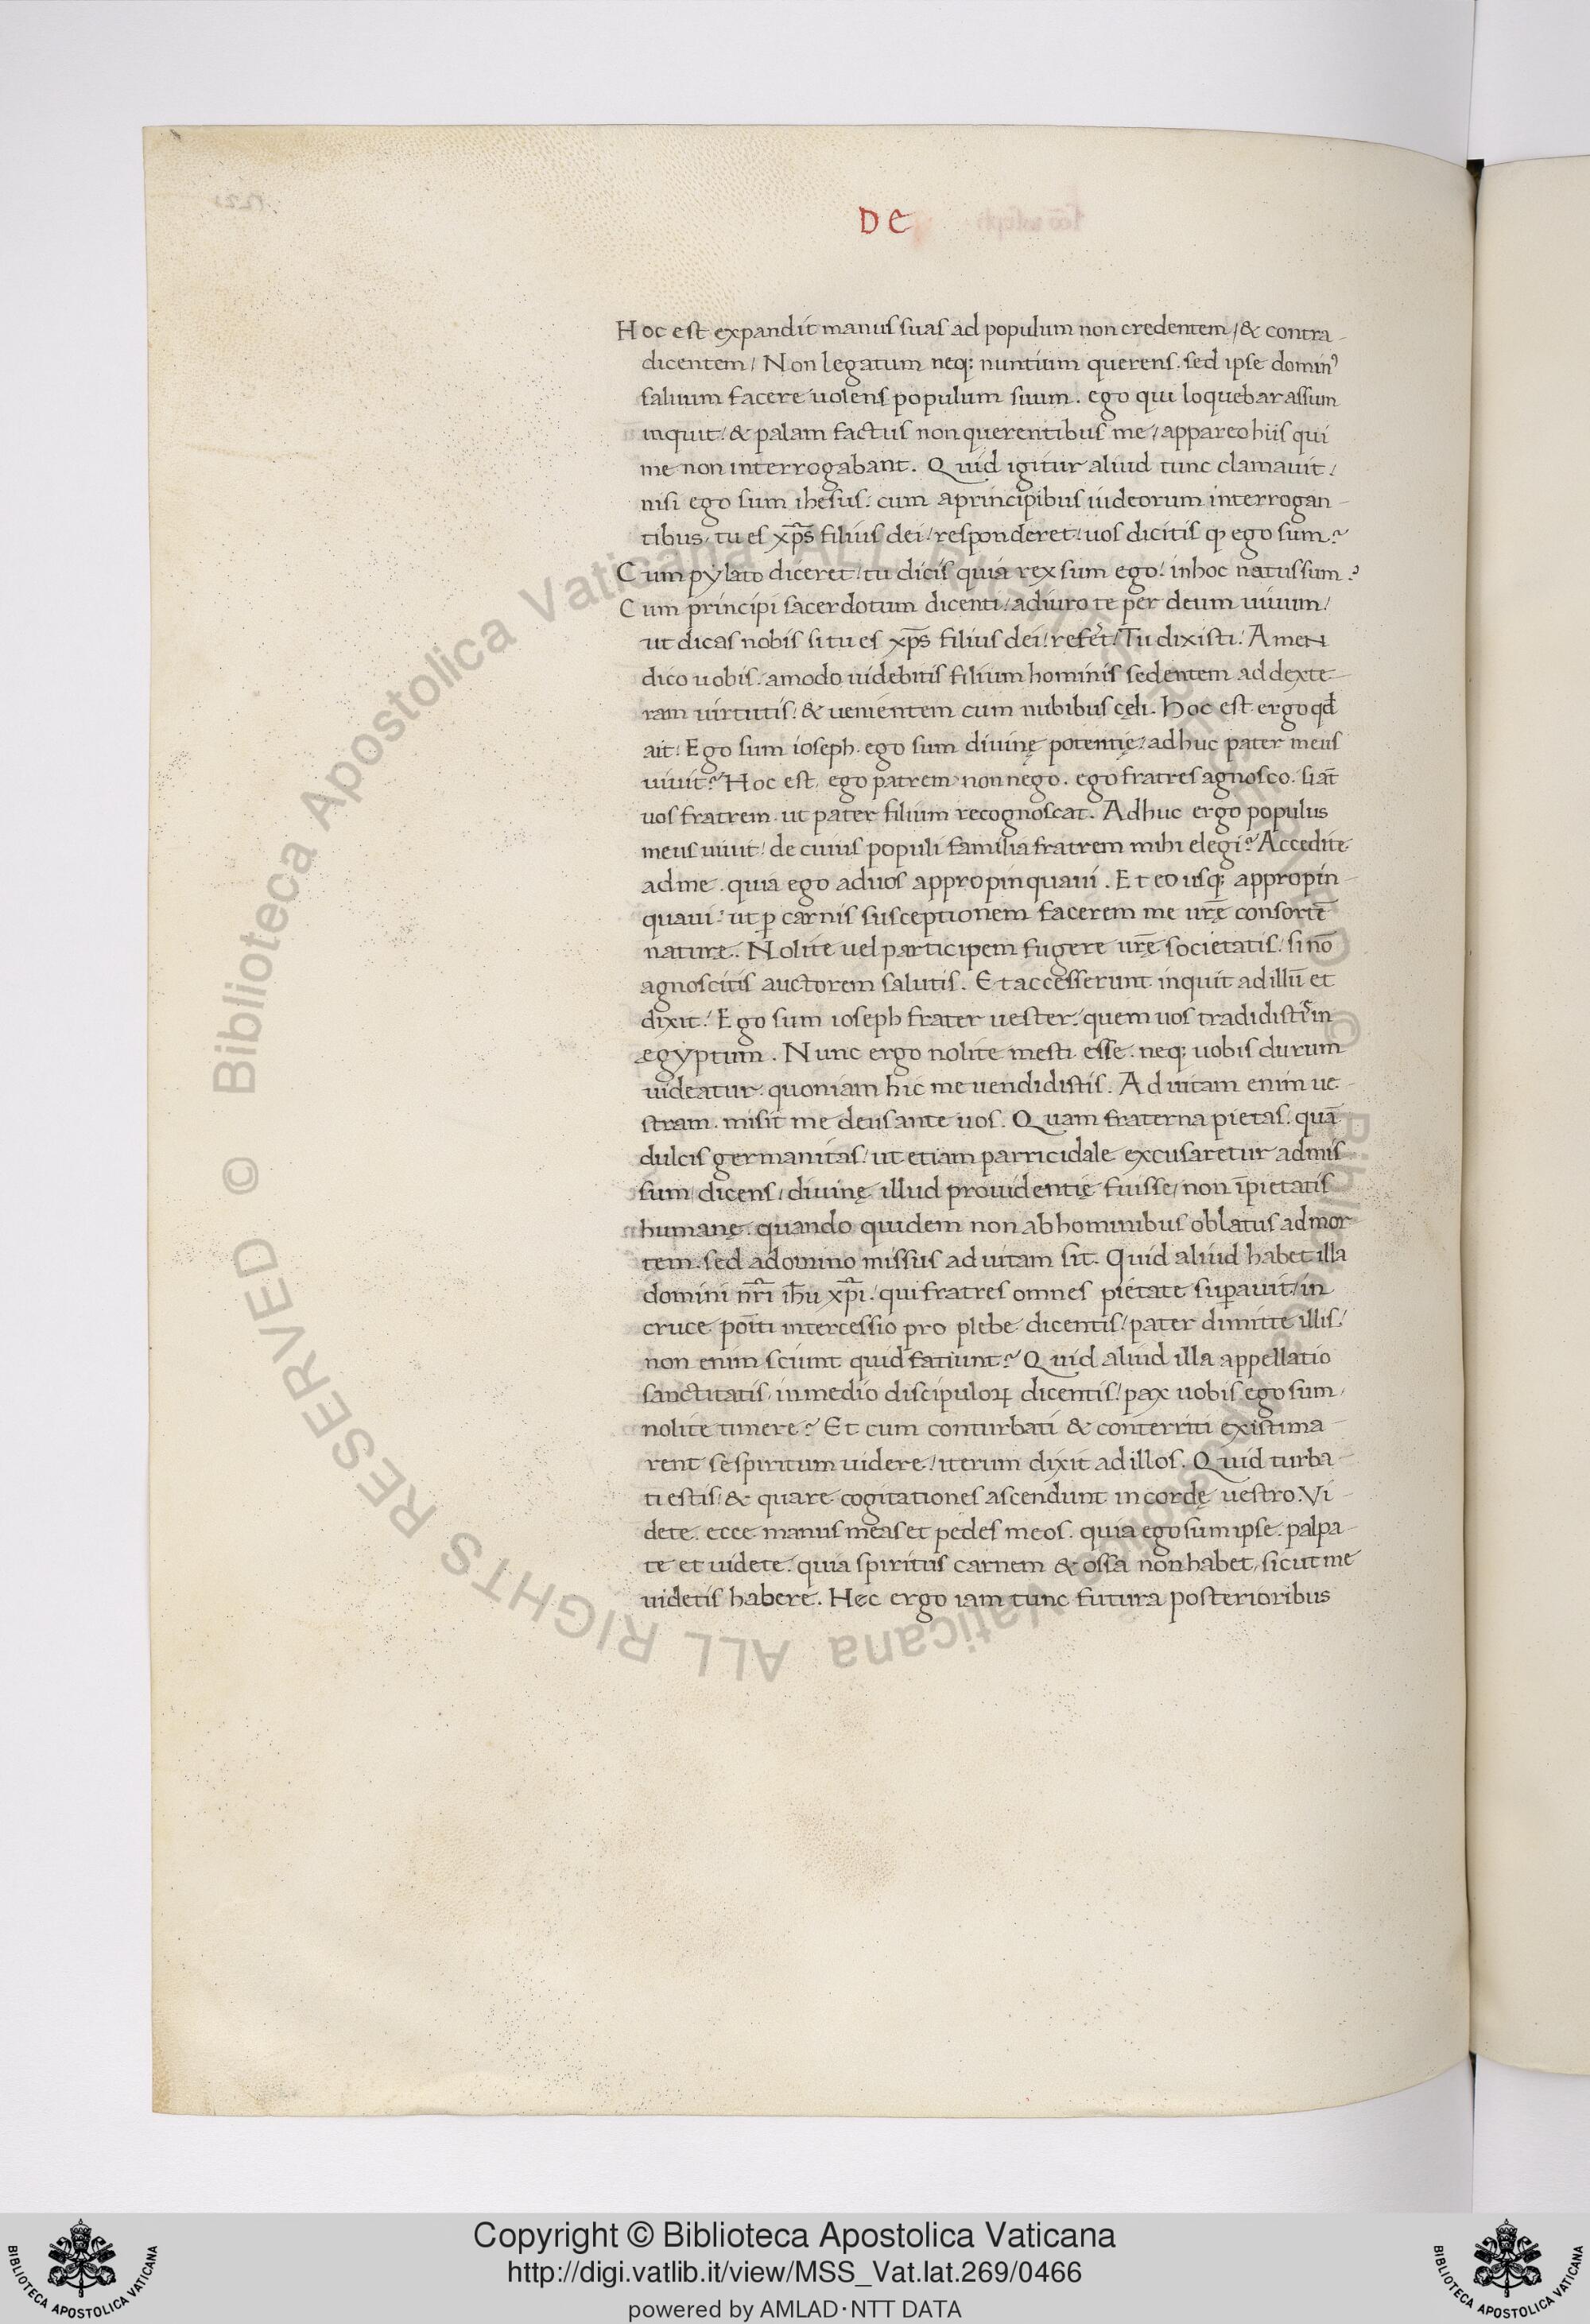 DE
Hoc est expandit manus suas ad populum non credentem / & contra-
dicentem / Non legatum neq; nuntium querens . sed ipse domin᾽
saluum facere uolens populum suum . ego qui loquebar assum
inquit / & palam factus non querentibus me / appareo hiis qui
me non interrogabant . Quid igitur aliud tunc clamauit /
nisi ego sum ihesus : cum a principibus iudeorum interrogan-
tibus / tu es xp̄s filius dei / responderet / uos dicitis ꝙ ego sum ?
Cum pylato diceret / tu dicis quia rex sum ego / in hoc natus sum ?
Cum principi sacerdotum dicenti / adiuro te per deum uiuum /
ut dicas nobis si tu es xp̄s filius dei / refert / Tu dixisti / Amen
dico uobis / amodo uidebitis filium hominis sedentem ad dexte-
ram uirtutis / & uenientem cum nubibus cęli . Hoc est ergo qđ
ait / Ego sum ioseph . ego sum diuinę potentię / adhuc pater meus
uiuit ? Hoc est . ego patrem non nego . ego fratres agnosco . si aut̄
uos fratrem . ut pater filium recognoscat . Adhuc ergo populus
meus uiuit / de cuius populi familia fratrem mihi elegi ? Accedite
ad me . quia ego ad uos appropinquaui . Et eo usq; appropin-
quaui / ut ꝑ carnis susceptionem facerem me ur̄ę consortē
naturę . Nolite uel participem fugere ur̄ę societatis / si nō
agnoscitis auctorem salutis . Et accesserunt inquit ad illū et
dixit / Ego sum ioseph frater uester / quem uos tradidistis in
egyptum . Nunc ergo nolite mesti esse . neq; uobis durum
uideatur . quoniam hic me uendidistis . Ad uitam enim ue-
stram . misit me deus ante uos . Quam fraterna pietas / quā
dulcis germanitas / ut etiam parricidale excusaretur admis-
sum / dicens / diuinę illud prouidentię fuisse / non īpietatis
humanę . quando quidem non ab hominibus oblatus ad mor-
tem . sed a domino missus ad uitam sit . Quid aliud habet illa
domini nr̄i ihū xp̄i / qui fratres omnes pietate suꝑauit / in
cruce poīti intercessio pro plebe dicentis / pater dimitte illis /
non enim sciunt quid fatiunt ? Quid aliud illa appellatio
sanctitatis / in medio discipuloꝝ dicentis / pax uobis ego sum /
nolite timere ? Et cum conturbati & conterriti existima-
rent se spiritum uidere / iterum dixit ad illos . Quid turba-
ti estis / & quare cogitationes ascendunt in cordę uestro . Vi-
dete . ecce manus meas et pedes meos . quia ego sum ipse . palpa-
te et uidete / quia spiritus carnem & ossa non habet / sicut me
uidetis habere . Hęc ergo iam tunc futura posterioribus
© Biblioteca Apostolica Vaticana ALL RIGHTS RESERVED
Copyright © Biblioteca Apostolica Vaticana
http://digi.vatlib.it/view/MSS_Vat.lat.269/0466
powered by AMLAD·NTT DATA
BIBLIOTECA APOSTOLICA VATICANA
BIBLIOTECA APOSTOLICA VATICANA